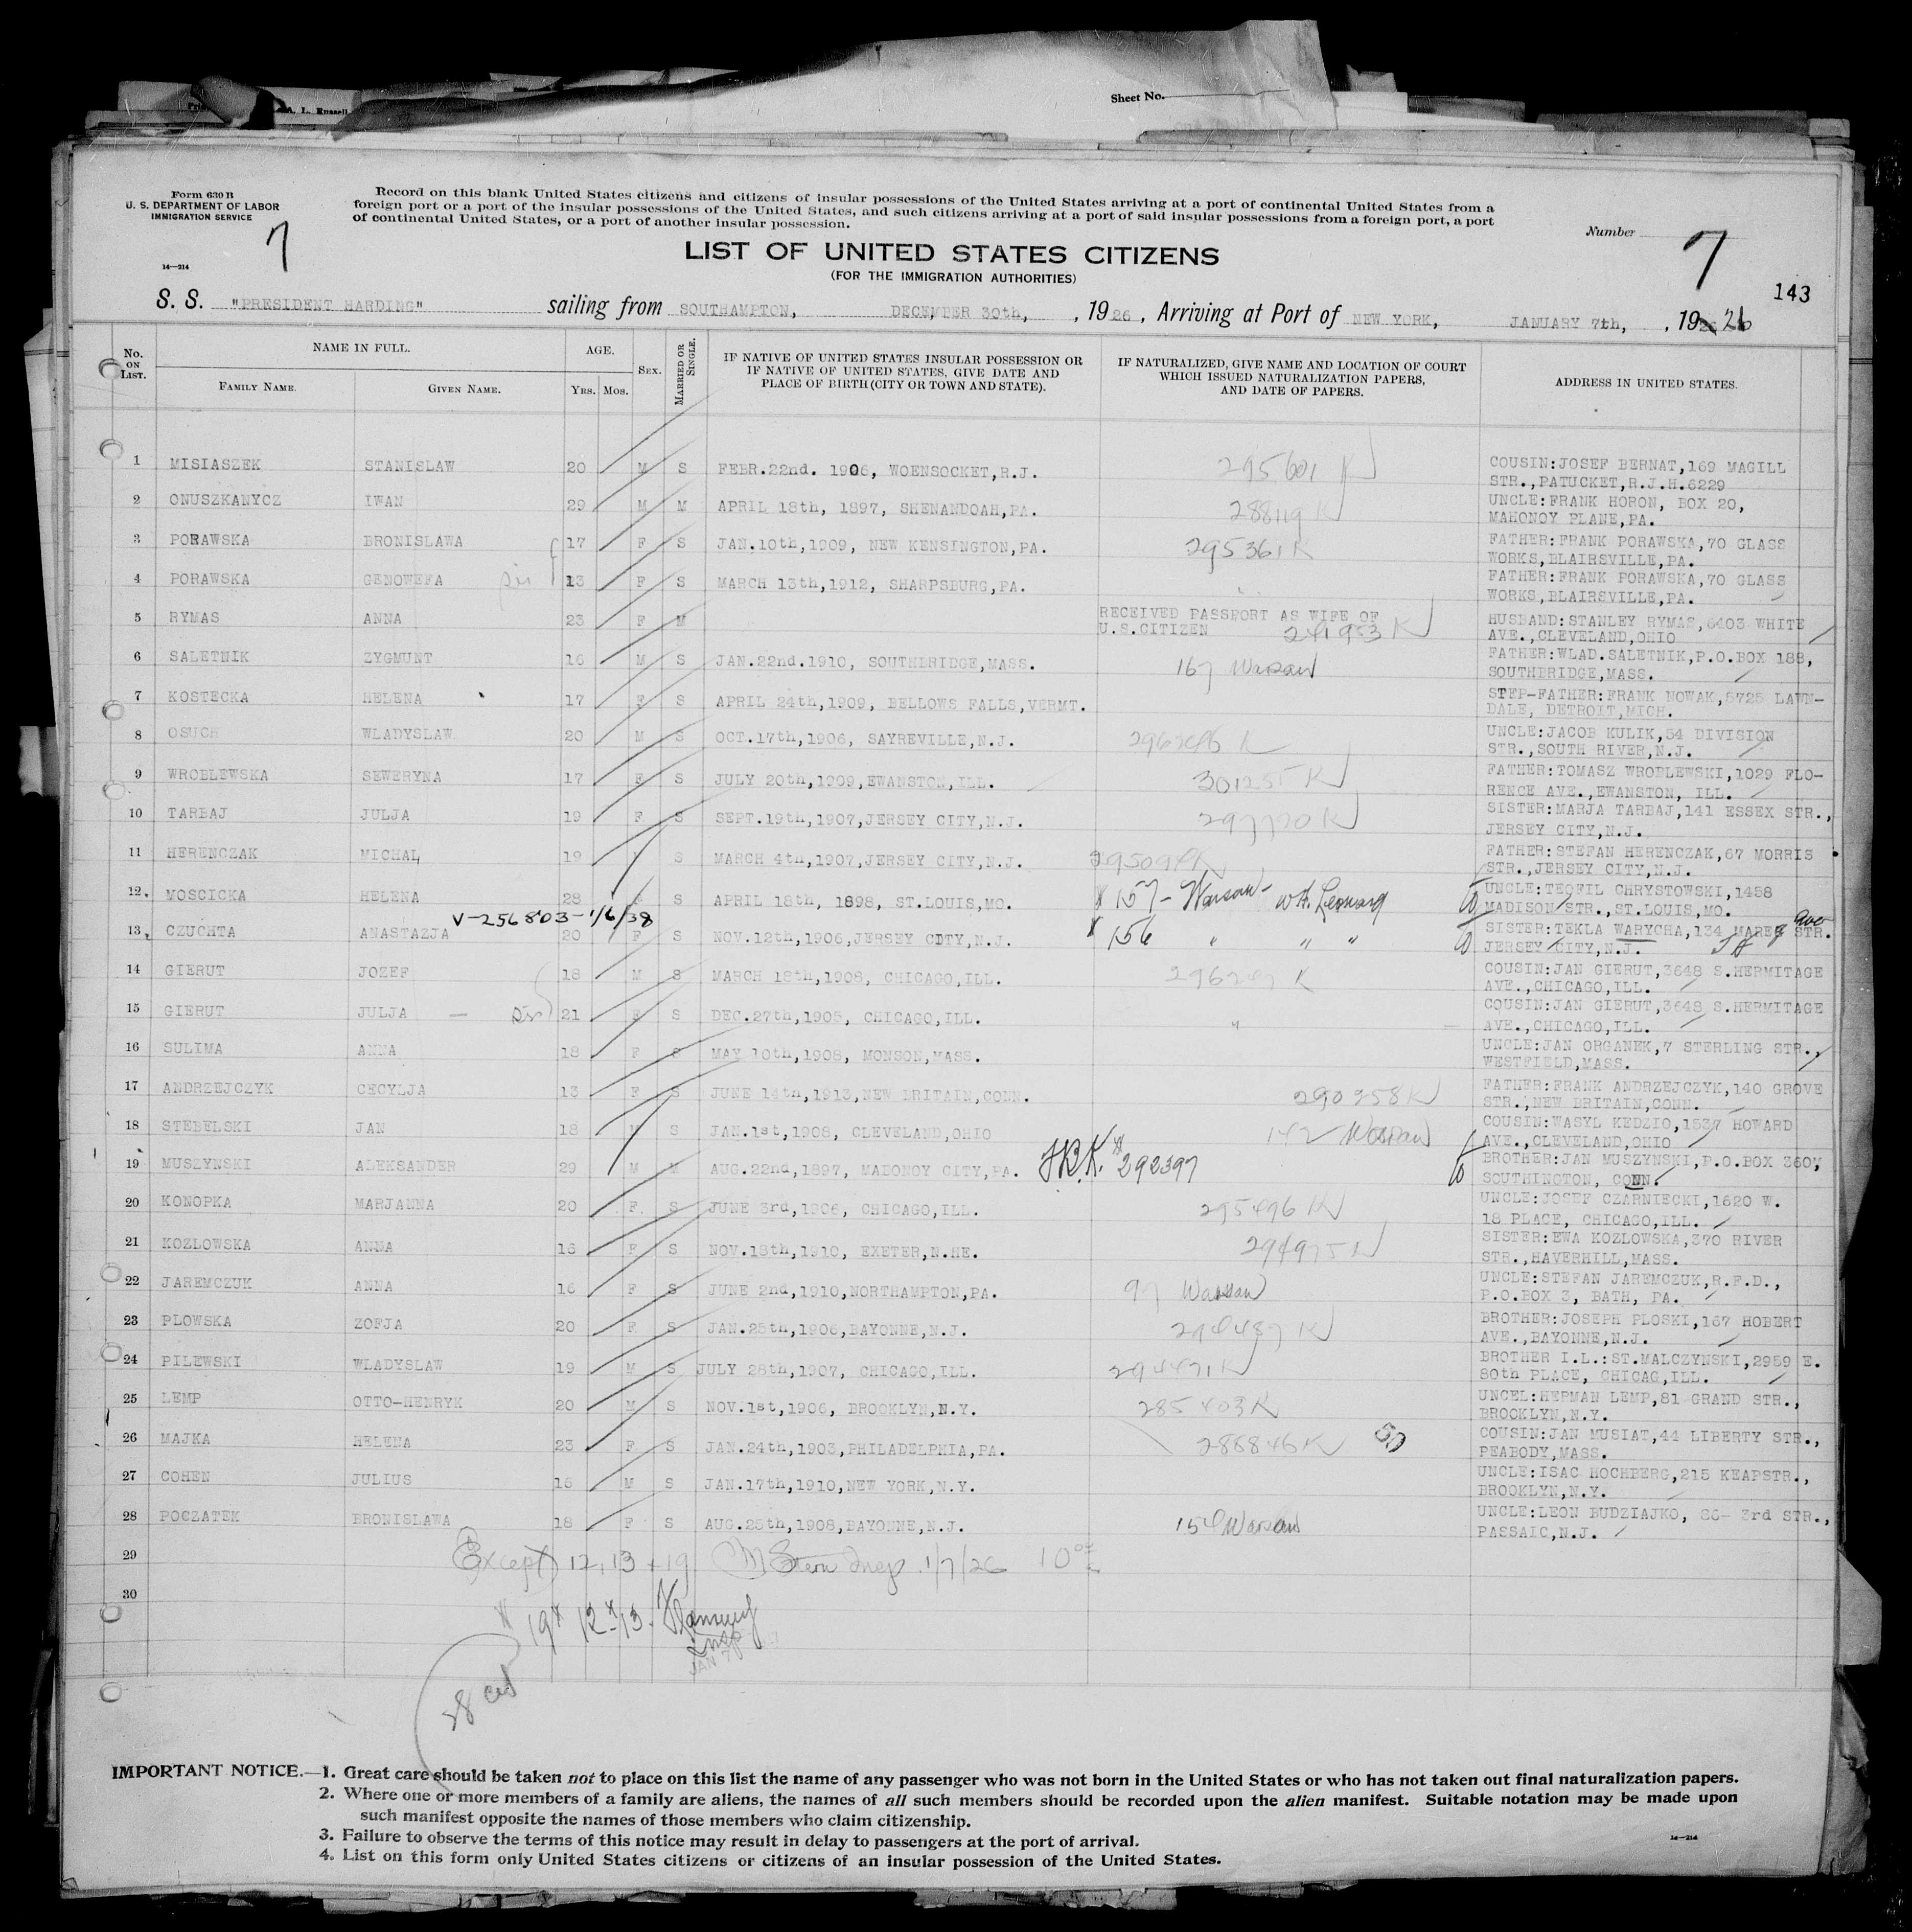 Sheet No.
A. L. Russell
Form 630 B
U. S. DEPARTMENT OF LABOR
IMMIGRATION SERVICE
7
14—214
Record on this blank United States citizens and citizens of insular possessions of the United States arriving at a port of continental United States from a
foreign port or a port of the insular possessions of the United States, and such citizens arriving at a port of said insular possessions from a foreign port, a port
of continental United States, or a port of another insular possession.
LIST OF UNITED STATES CITIZENS
(FOR THE IMMIGRATION AUTHORITIES)
Number 7
143
S. S. "PRESIDENT HARDING" sailing from SOUTHAMPTON, DECEMBER 30th, , 1926 , Arriving at Port of NEW YORK, JANUARY 7th, , 19 26
No. ON LIST. NAME IN FULL. AGE. SEX. MARRIED OR SINGLE. IF NATIVE OF UNITED STATES INSULAR POSSESSION OR IF NATIVE OF UNITED STATES, GIVE DATE AND PLACE OF BIRTH (CITY OR TOWN AND STATE). IF NATURALIZED, GIVE NAME AND LOCATION OF COURT WHICH ISSUED NATURALIZATION PAPERS, AND DATE OF PAPERS. ADDRESS IN UNITED STATES.
FAMILY NAME. GIVEN NAME. YRS. MOS.
1 MISIASZEK STANISLAW 20 M S FEBR.22nd. 1906, WOENSOCKET,R.J. 295601 K COUSIN:JOSEF BERNAT,169 MAGILL
STR.,PATUCKET,R.J.H.6229
2 ONUSZKANYCZ IWAN 29 M M APRIL 18th, 1897, SHENANDOAH,PA. 288119 K UNCLE:FRANK HORON, BOX 20,
MAHONOY PLANE,PA.
3 PORAWSKA BRONISLAWA 17 F S JAN.10th,1909, NEW KENSINGTON,PA. 295361 K FATHER:FRANK PORAWSKA,70 GLASS
WORKS,BLAIRSVILLE,PA.
4 PORAWSKA GENOWEFA Sis 13 F S MARCH 13th,1912, SHARPSBURG,PA. FATHER:FRANK PORAWSKA,70 GLASS
WORKS,BLAIRSVILLE,PA.
5 RYMAS ANNA 23 F M RECEIVED PASSPORT AS WIFE OF HUSBAND:STANLEY RYMAS,6403 WHITE
U.S.CITIZEN 241953 K AVE.,CLEVELAND,OHIO
6 SALETNIK ZYGMUNT 16 M S JAN.22nd.1910, SOUTHBRIDGE,MASS. 167 Warsaw FATHER:WLAD.SALETNIK,P.O.BOX 188,
SOUTHBRIDGE,MASS.
7 KOSTECKA HELENA 17 F S APRIL 24th,1909, BELLOWS FALLS,VERMT. STEP-FATHER:FRANK NOWAK,5725 LAWN-
DALE, DETROIT,MICH.
8 OSUCH WLADYSLAW 20 M S OCT.17th,1906, SAYREVILLE,N.J. UNCLE:JACOB KULIK,54 DIVISION
STR.,SOUTH RIVER,N.J.
9 WROBLEWSKA SEWERYNA 17 F S JULY 20th,1909,EWANSTON,ILL. 301255 K FATHER:TOMASZ WROBLEWSKI,1029 FLO-
RENCE AVE.,EWANSTON, ILL.
10 TARBAJ JULJA 19 F S SEPT.19th,1907,JERSEY CITY,N.J. 297720 K SISTER:MARJA TARBAJ,141 ESSEX STR.,
JERSEY CITY,N.J.
11 HERENCZAK MICHAL 19 S MARCH 4th,1907,JERSEY CITY,N.J. FATHER:STEFAN HERENCZAK,67 MORRIS
STR.,JERSEY CITY,N.J.
12. MOSCICKA HELENA 28 F S APRIL 18th, 1898, ST.LOUIS,MO. 157 - Warsaw - UNCLE:TEOFIL CHRYSTOWSKI,1458
MADISON STR.,ST.LOUIS,MO.
V-256803-1/6/38
13. CZUCHTA ANASTAZJA 20 F S NOV.12th,1906,JERSEY CITY,N.J. 156 " " " SISTER:TEKLA WARYCHA,134 MAREG STR. Ave
JERSEY CITY,N.J.
14 GIERUT JOZEF 18 M S MARCH 18th,1908, CHICAGO,ILL. 296247 K COUSIN:JAN GIERUT,3648 S.HERMITAGE
AVE.,CHICAGO,ILL.
15 GIERUT JULJA — Sis 21 F S DEC.27th,1905, CHICAGO,ILL. " COUSIN:JAN GIERUT,3648 S.HERMITAGE
AVE.,CHICAGO,ILL.
16 SULIMA ANNA 18 F S MAY 10th,1908, MONSON,MASS. UNCLE:JAN ORGANEK,7 STERLING STR.,
WESTFIELD,MASS.
17 ANDRZEJCZYK CECYLJA 13 F S JUNE 14th,1913,NEW BRITAIN,CONN. 290958 K FATHER:FRANK ANDRZEJCZYK,140 GROVE
STR.,NEW BRITAIN,CONN.
18 STEBELSKI JAN 18 M S JAN.1st,1908, CLEVELAND,OHIO 142 Warsaw COUSIN:WASYL KEDZIO,1537 HOWARD
AVE.,CLEVELAND,OHIO
19 MUSZYNSKI ALEKSANDER 29 M M AUG.22nd,1897, MADONOY CITY,PA. 292397 BROTHER:JAN MUSZYNSKI,P.O.BOX 360,
SOUTHINGTON, CONN.
20 KONOPKA MARJANNA 20 F S JUNE 3rd,1906, CHICAGO,ILL. 295496 K UNCLE:JOSEF CZARNIECKI,1620 W.
18 PLACE, CHICAGO,ILL.
21 KOZLOWSKA ANNA 16 F S NOV.18th,1910, EXETER,N.HE. 294975 K SISTER:EWA KOZLOWSKA,370 RIVER
STR.,HAVERHILL,MASS.
22 JAREMCZUK ANNA 16 F S JUNE 2nd,1910,NORTHAMPTON,PA. 97 Warsaw UNCLE:STEFAN JAREMCZUK,R.F.D.,
P.O.BOX 3, BATH, PA.
23 PLOWSKA ZOFJA 20 F S JAN.25th,1906,BAYONNE,N.J. 294487 K BROTHER:JOSEPH PLOSKI,167 HOBERT
AVE.,BAYONNE,N.J.
24 PILEWSKI WLADYSLAW 19 M S JULY 28th,1907, CHICAGO,ILL. 294471 K BROTHER I.L.:ST.MALCZYNSKI,2959 E.
80th PLACE, CHICAG,ILL.
25 LEMP OTTO-HENRYK 20 M S NOV.1st,1906, BROOKLYN,N.Y. 285403 K UNCEL:HERMAN LEMP,81 GRAND STR.,
BROOKLYN,N.Y.
26 MAJKA HELENA 23 F S JAN.24th,1903,PHILADELPHIA,PA. 286846 K 50 COUSIN:JAN MUSIAT,44 LIBERTY STR.,
PEABODY,MASS.
27 COHEN JULIUS 16 M S JAN.17th,1910,NEW YORK,N.Y. UNCLE:ISAC HOCHBERG,215 KEAPSTR.,
BROOKLYN,N.Y.
28 POCZATEK BRONISLAWA 18 F S AUG.25th,1908,BAYONNE,N.J. 154 Warsaw UNCLE:LEON BUDZIAJKO, 86- 3rd STR.,
PASSAIC,N.J.
29 Except 12, 13 + 19 Insp. 1/7/26
30
19 12 13 Insp
28 cit
IMPORTANT NOTICE.—1. Great care should be taken not to place on this list the name of any passenger who was not born in the United States or who has not taken out final naturalization papers.
2. Where one or more members of a family are aliens, the names of all such members should be recorded upon the alien manifest. Suitable notation may be made upon
such manifest opposite the names of those members who claim citizenship.
3. Failure to observe the terms of this notice may result in delay to passengers at the port of arrival.
14—214
4. List on this form only United States citizens or citizens of an insular possession of the United States.